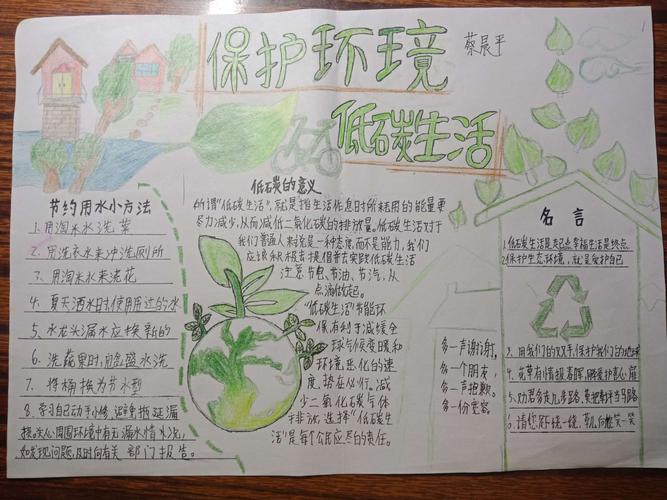 保护环境
蔡晨平
低碳生活
节约用水小方法
1、用淘米水洗菜
2、用洗衣水来冲洗厕所
3、用淘米水来浇花
4、夏天洒水时使用用过的水
5、水龙头漏水应换新的
6、洗蔬果时用盆盛水洗
7、将桶换为节水型
8、学习自己动手小修,避免拖延漏
损。关心周围环境中有无漏水情水况,
如发现问题,及时向有关部门报告。
低碳的意义
所谓"低碳生活",就是指生活作息时所耗用的能量要
尽力减少,从而减低二氧化碳的排放量。低碳生活对于
我们普通人来说是一种态度,而不是能力,我们
应该积极去提倡着去实践低碳生活
注意节电、节油、节汽,从
点滴做起。
"低碳生活"节能环
保,有利于减缓全
球气候变暖和
环境恶化的速
度,势在必行。减
少二氧化碳气体
排放,选择"低碳生
活"是每个公民应尽的责任。
多一声谢谢,
多一个朋友,
多一声抱歉。
多一份宽容。
名言
1、低碳生活是起点幸福生活是终点
2、保护生态环境,就是爱护自己
3、用我们的双手,保护我们的地球
4、花草有情报春晖
6、请您足下绕一绕,草儿向您笑一笑